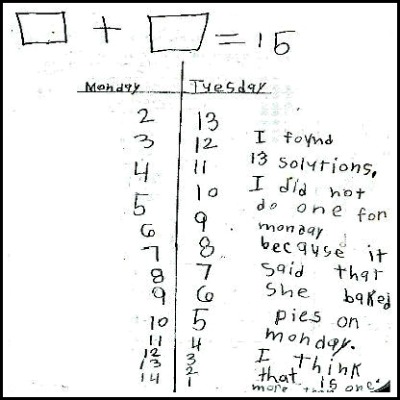 □ + □ = 15
Monday Tuesday
2 13
3 12
4 11
5 10
6 9
7 8
8 7
9 6
10 5
11 4
12 3
13 2
14 1
I found
13 solutions.
I did not
do one for
monday
because it
said that
she baked
pies on
monday.
I think
that is
more than one.